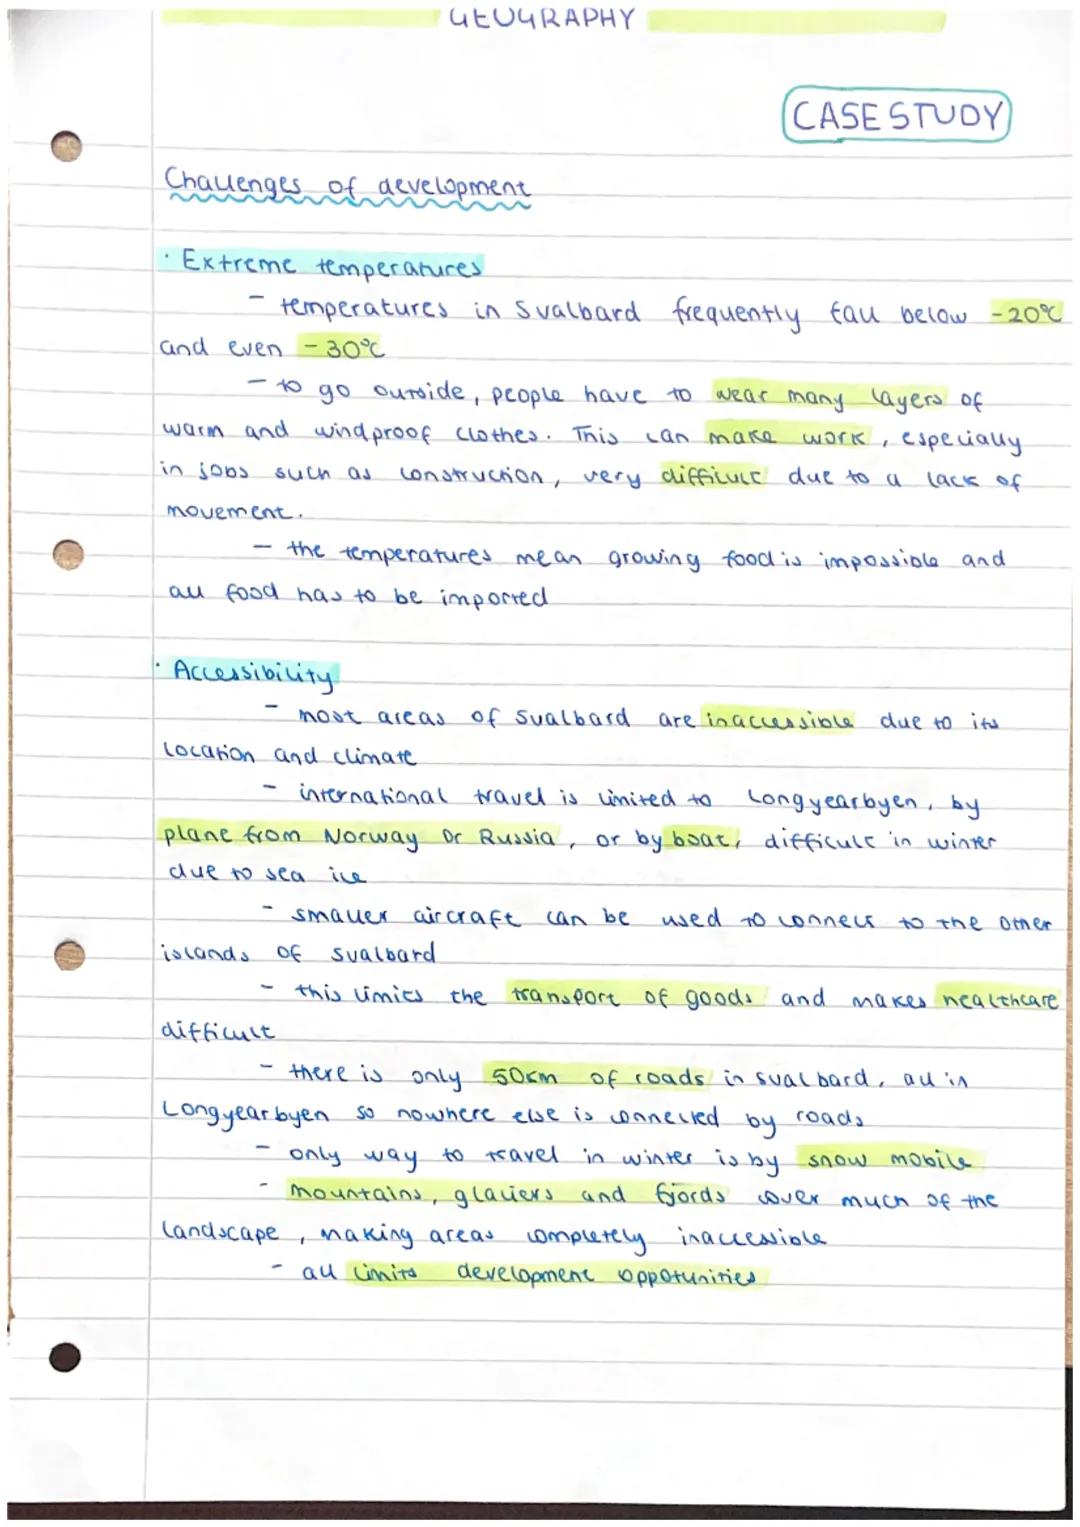 GEOGRAPHY
CASE STUDY
Challenges of development
· Extreme temperatures
- temperatures in Svalbard frequently fall below -20°C
and even -30°C
- to go outside, people have to wear many layers of
warm and windproof clothes. This can make work, especially
in jobs such as construction, very difficult due to a lack of
movement.
- the temperatures mean growing food is impossible and
all food has to be imported
· Accessibility
- most areas of Svalbard are inaccessible due to its
location and climate
- international travel is limited to Longyearbyen, by
plane from Norway or Russia, or by boat, difficult in winter
due to sea ice
- smaller aircraft can be used to connect to the other
islands of Svalbard
- this limits the transport of goods and makes healthcare
difficult
- there is only 50km of roads in svalbard, all in
Longyearbyen so nowhere else is connected by roads
- only way to travel in winter is by snow mobile
- mountains, glaciers and fjords cover much of the
landscape, making areas completely inaccessible
- all limits development oppotunities